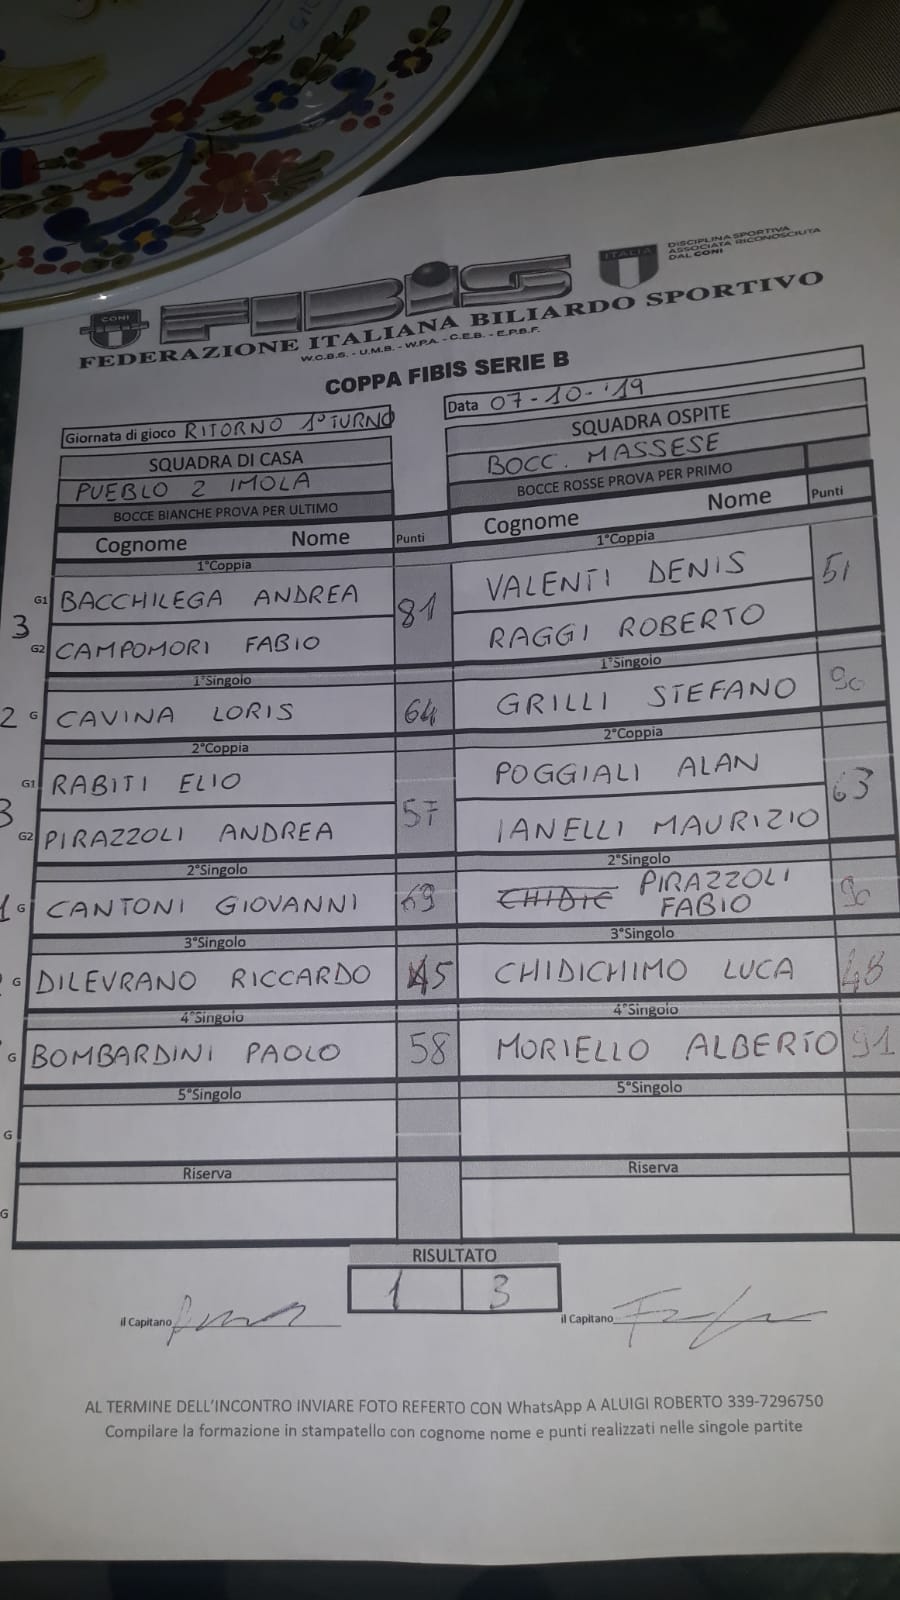 ITALIA
DISCIPLINA SPORTIVA
ASSOCIATA RICONOSCIUTA
DAL CONI
CONI
FIBIS
FEDERAZIONE ITALIANA BILIARDO SPORTIVO
W.C.B.S. - U.M.B. - W.P.A. - C.E.B. - E.P.B.F.
COPPA FIBIS SERIE B
Giornata di gioco RITORNO 1° TURNO
Data 07-10-'19
SQUADRA DI CASA
SQUADRA OSPITE
PUEBLO 2 IMOLA
BOCC. MASSESE
BOCCE BIANCHE PROVA PER ULTIMO
BOCCE ROSSE PROVA PER PRIMO
Cognome Nome Punti
Cognome Nome Punti
1°Coppia
1°Coppia
3 G1 BACCHILEGA ANDREA 81
VALENTI DENIS 51
G2 CAMPOMORI FABIO
RAGGI ROBERTO
1°Singolo
1°Singolo
2 G CAVINA LORIS 64
GRILLI STEFANO 90
2°Coppia
2°Coppia
3 G1 RABITI ELIO 57
POGGIALI ALAN 63
G2 PIRAZZOLI ANDREA
IANELLI MAURIZIO
2°Singolo
2°Singolo
1 G CANTONI GIOVANNI 69
CHIDIC PIRAZZOLI 90
FABIO
3°Singolo
3°Singolo
G DILEVRANO RICCARDO 45
CHIDICHIMO LUCA 48
4°Singolo
4°Singolo
G BOMBARDINI PAOLO 58
MORIELLO ALBERTO 91
5°Singolo
5°Singolo
G
Riserva
Riserva
G
RISULTATO
1 3
il Capitano
il Capitano
AL TERMINE DELL'INCONTRO INVIARE FOTO REFERTO CON WhatsApp A ALUIGI ROBERTO 339-7296750
Compilare la formazione in stampatello con cognome nome e punti realizzati nelle singole partite